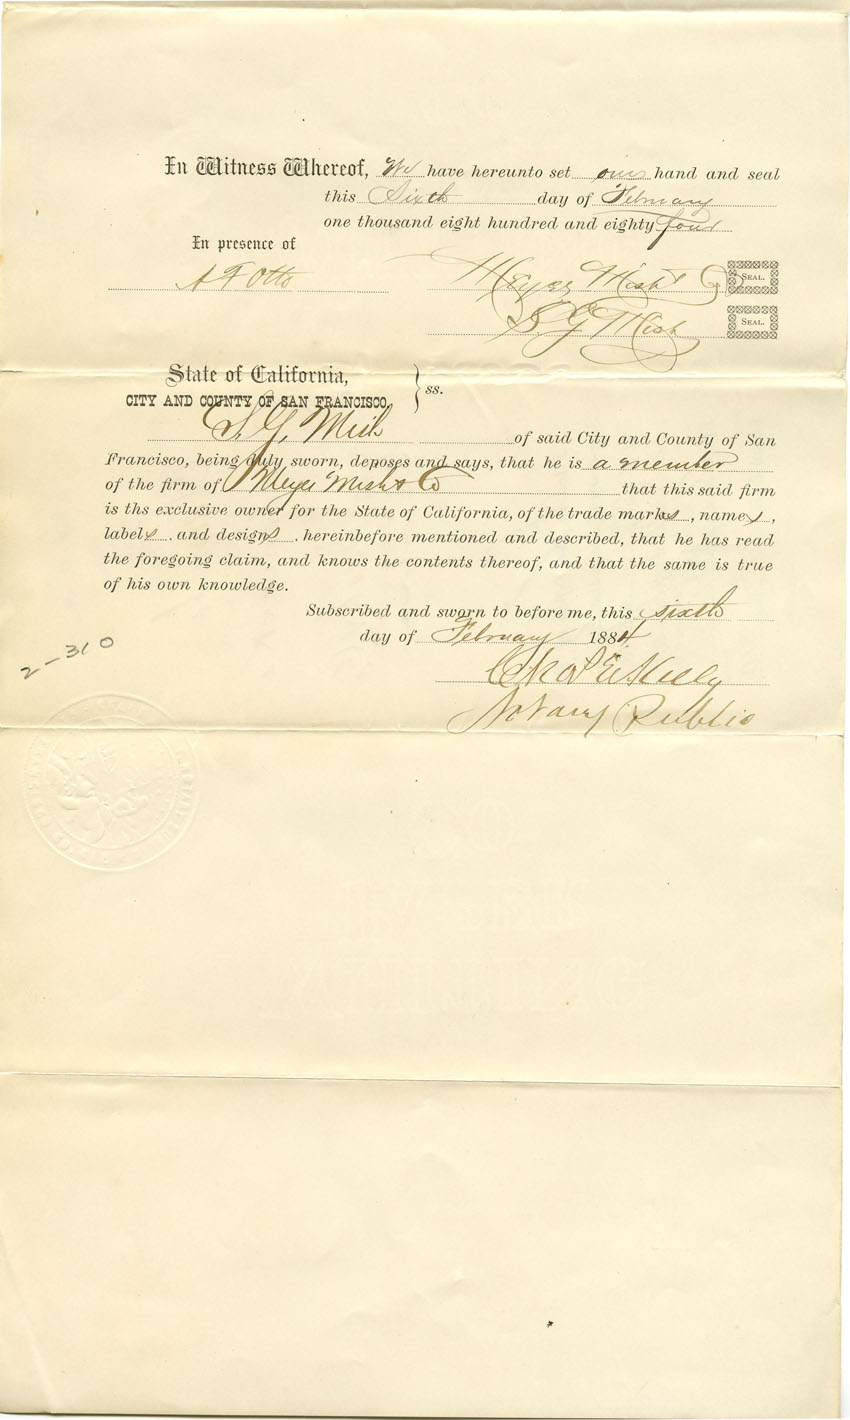 In Witness Whereof, We have hereunto set our hand and seal
this Sixth day of February
one thousand eight hundred and eighty four
In presence of
A F Otto
Meyer Mish & Co SEAL.
S. G Mish SEAL.
State of California,
CITY AND COUNTY OF SAN FRANCISCO, } ss.
S. G. Mish of said City and County of San
Francisco, being duly sworn, deposes and says, that he is a member
of the firm of Meyer Mish & Co that this said firm
is ths exclusive owner for the State of California, of the trade marks, names,
labels and designs hereinbefore mentioned and described, that he has read
the foregoing claim, and knows the contents thereof, and that the same is true
of his own knowledge.
Subscribed and sworn to before me, this sixth
day of February 1884
2-310
Chas E Kelly
Notary Public